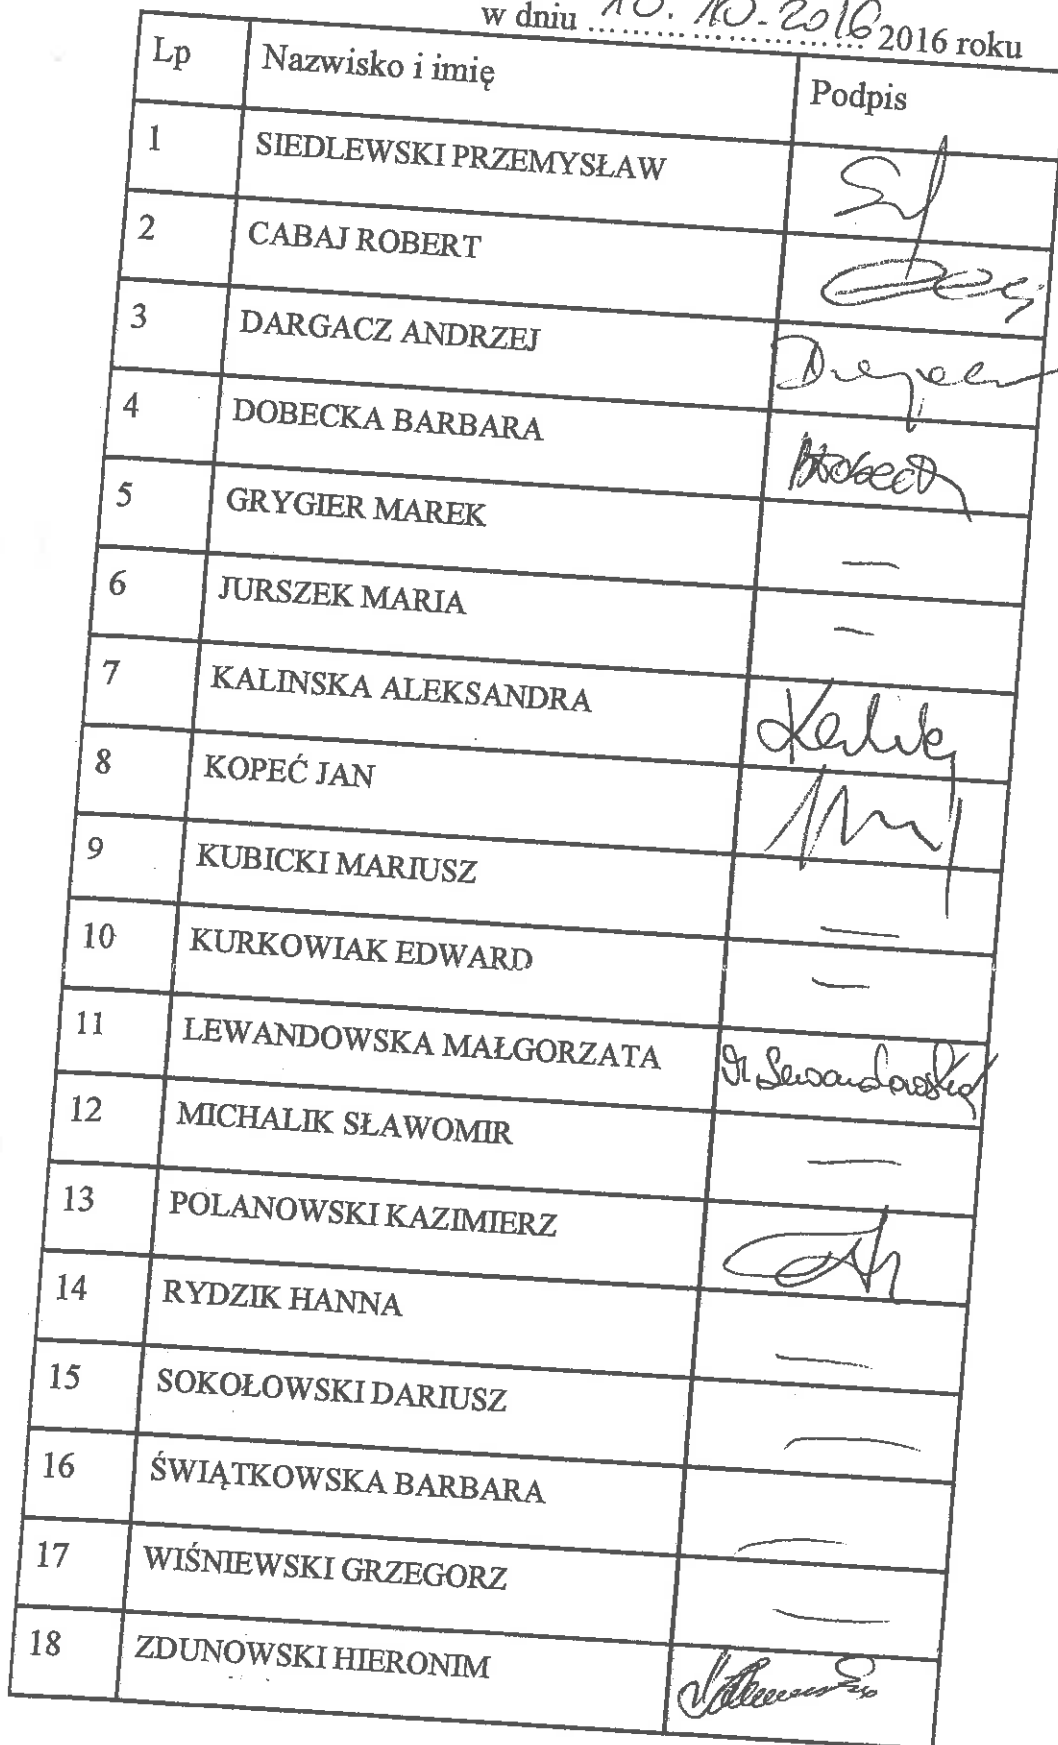 w dniu 10.10-2016 2016 roku
Lp Nazwisko i imię Podpis
1 SIEDLEWSKI PRZEMYSŁAW
2 CABAJ ROBERT
3 DARGACZ ANDRZEJ
4 DOBECKA BARBARA
5 GRYGIER MAREK —
6 JURSZEK MARIA —
7 KALINSKA ALEKSANDRA
8 KOPEĆ JAN
9 KUBICKI MARIUSZ —
10 KURKOWIAK EDWARD —
11 LEWANDOWSKA MAŁGORZATA M Lewandowska
12 MICHALIK SŁAWOMIR —
13 POLANOWSKI KAZIMIERZ
14 RYDZIK HANNA —
15 SOKOŁOWSKI DARIUSZ —
16 ŚWIĄTKOWSKA BARBARA —
17 WIŚNIEWSKI GRZEGORZ —
18 ZDUNOWSKI HIERONIM